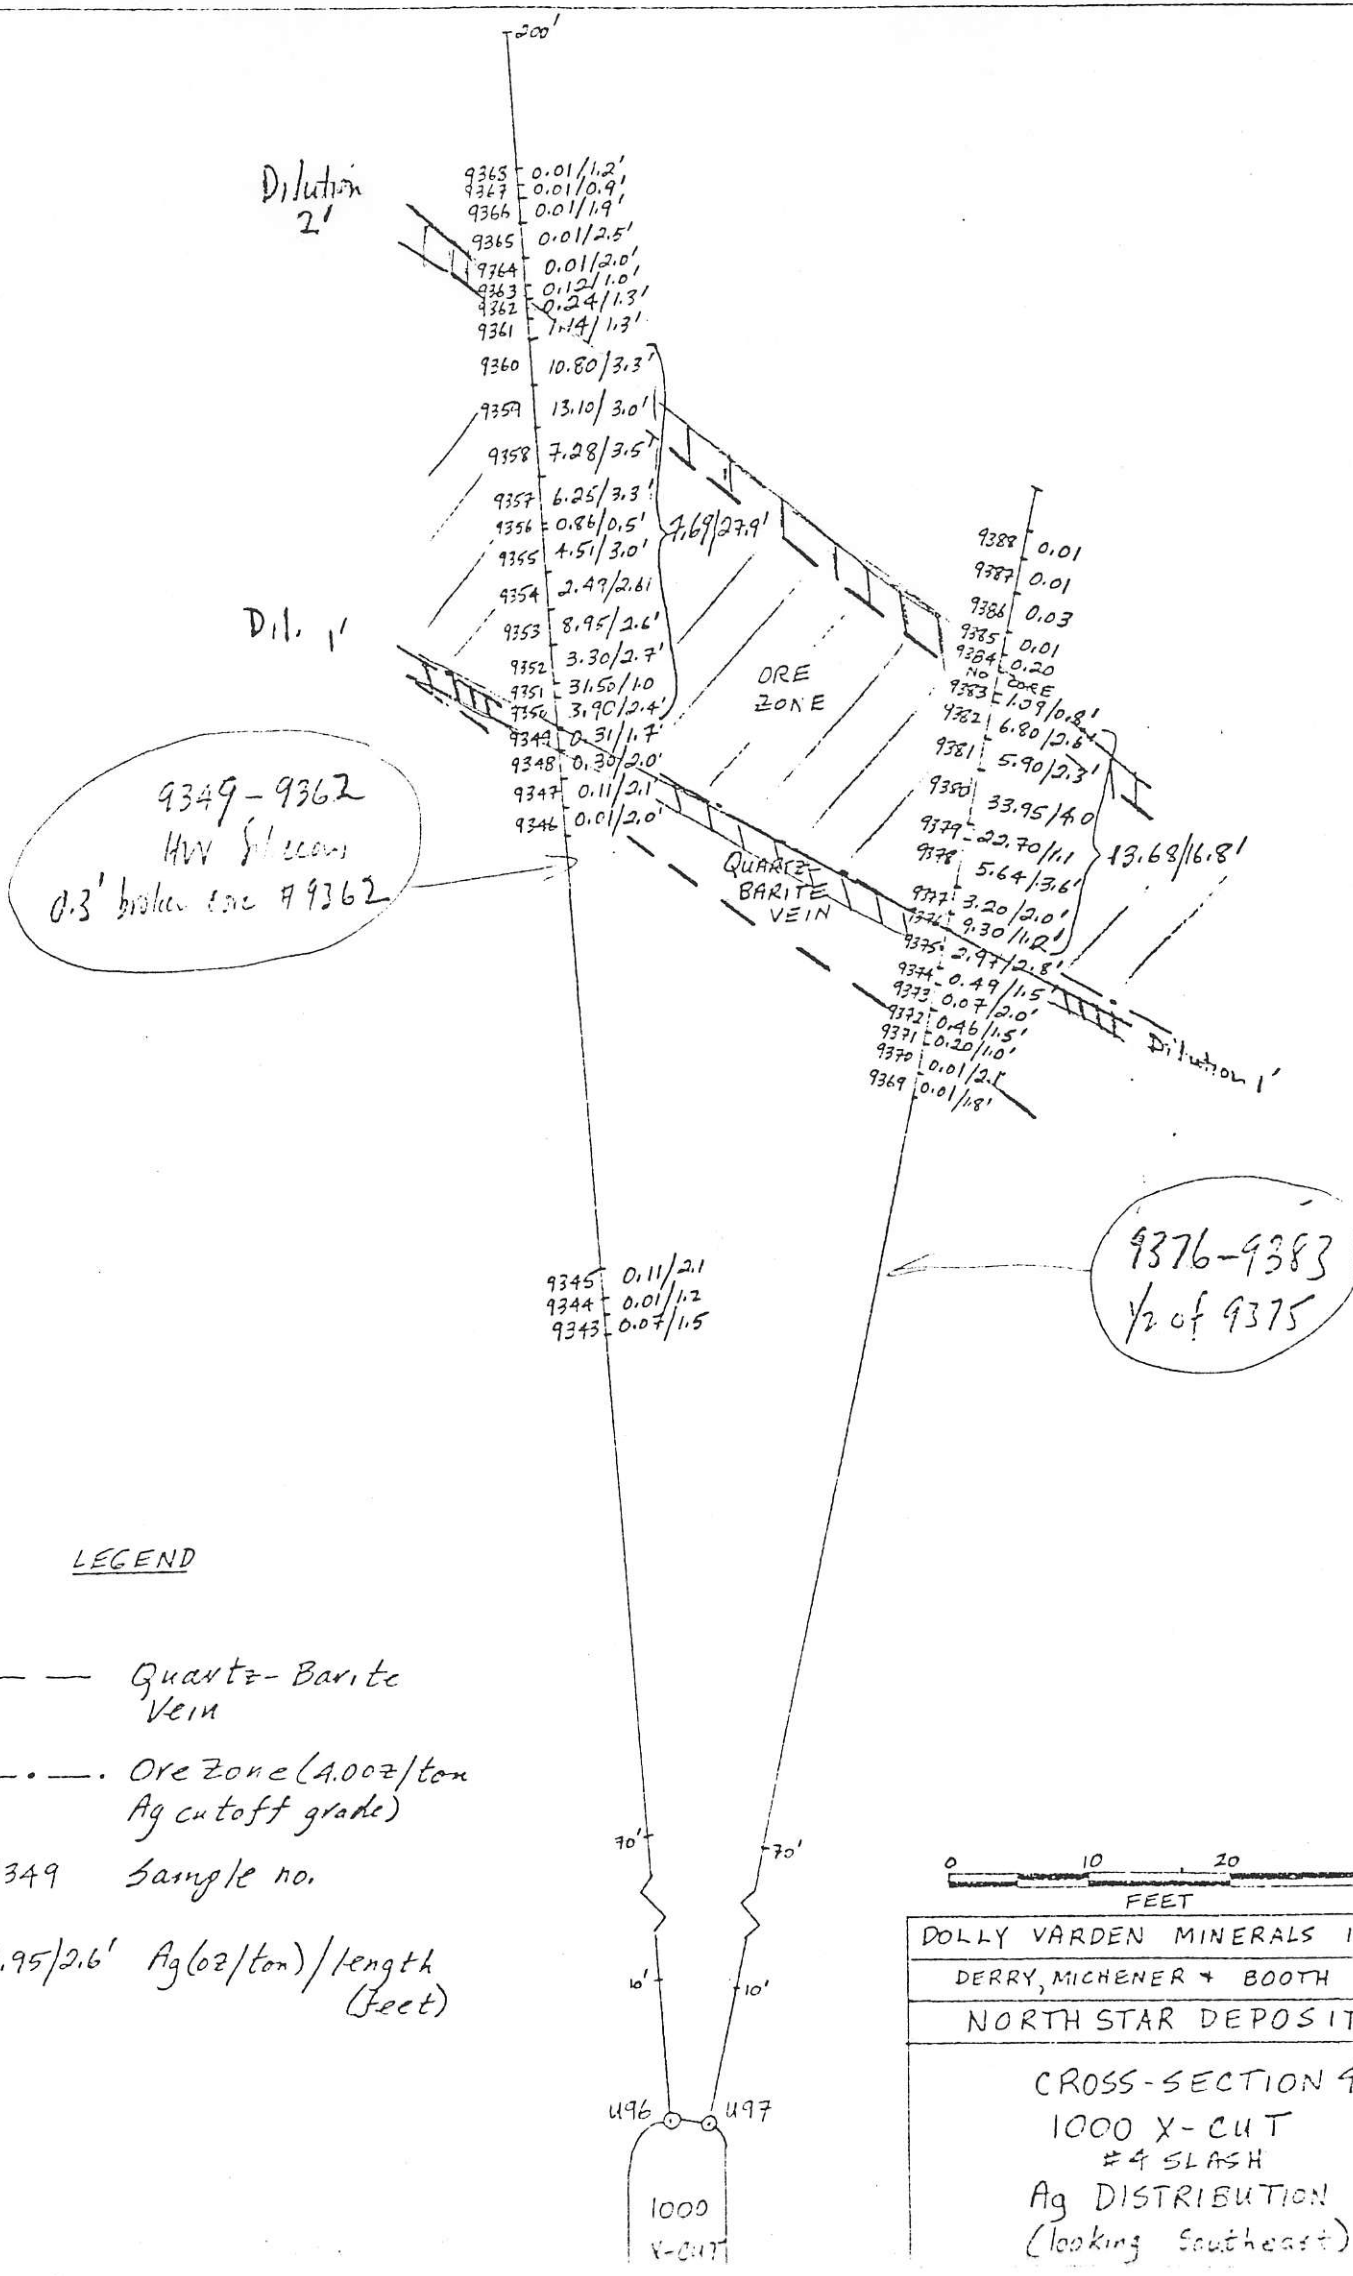 200'
Dilution
2'
9368 0.01/1.2'
9367 0.01/0.9'
9366 0.01/1.9'
9365 0.01/2.5'
9764 0.01/2.0'
9363 0.12/1.0'
9362 0.24/1.3'
9361 1.14/1.3'
9360 10.80/3.3'
9359 13.10/3.0'
9358 7.28/3.5'
9357 6.25/3.3'
9356 0.86/0.5'
9355 4.51/3.0'
9354 2.49/2.6'
9353 8.95/2.6'
9352 3.30/2.7'
9351 31.50/1.0
9350 3.90/2.4'
9349 0.31/1.7'
9348 0.30/2.0'
9347 0.11/2.1'
9346 0.01/2.0'
7.69/27.9'
Dil. 1'
ORE
ZONE
QUARTZ-
BARITE
VEIN
9388 0.01
9387 0.01
9386 0.03
9385 0.01
9384 0.20
NO CORE
9383 1.09/0.8'
9382 6.80/2.6'
9381 5.90/2.3'
9380 33.95/4.0
9379 22.70/1.1
9378 5.64/3.6'
9377 3.20/2.0'
9376 9.30/1.2'
9375 2.97/2.8'
9374 0.49/1.5'
9373 0.07/2.0'
9372 0.46/1.5'
9371 0.20/1.0'
9370 0.01/2.1'
9369 0.01/1.8'
13.68/16.8'
Dilution 1'
9349-9362
HW
0.3' broken core 9362
9376-9383
1/2 of 9375
9345 0.11/2.1
9344 0.01/1.2
9343 0.07/1.5
LEGEND
Quartz-Barite
Vein
Ore Zone (4.0oz/ton
Ag cutoff grade)
349 Sample no.
.95/2.6' Ag(oz/ton)/length
(feet)
70'
70'
10'
10'
U96 U97
1000
X-CUT
0 10 20
FEET
DOLLY VARDEN MINERALS I
DERRY, MICHENER + BOOTH
NORTH STAR DEPOSIT
CROSS-SECTION 9
1000 X-CUT
#4 SLASH
Ag DISTRIBUTION
(looking Southeast)